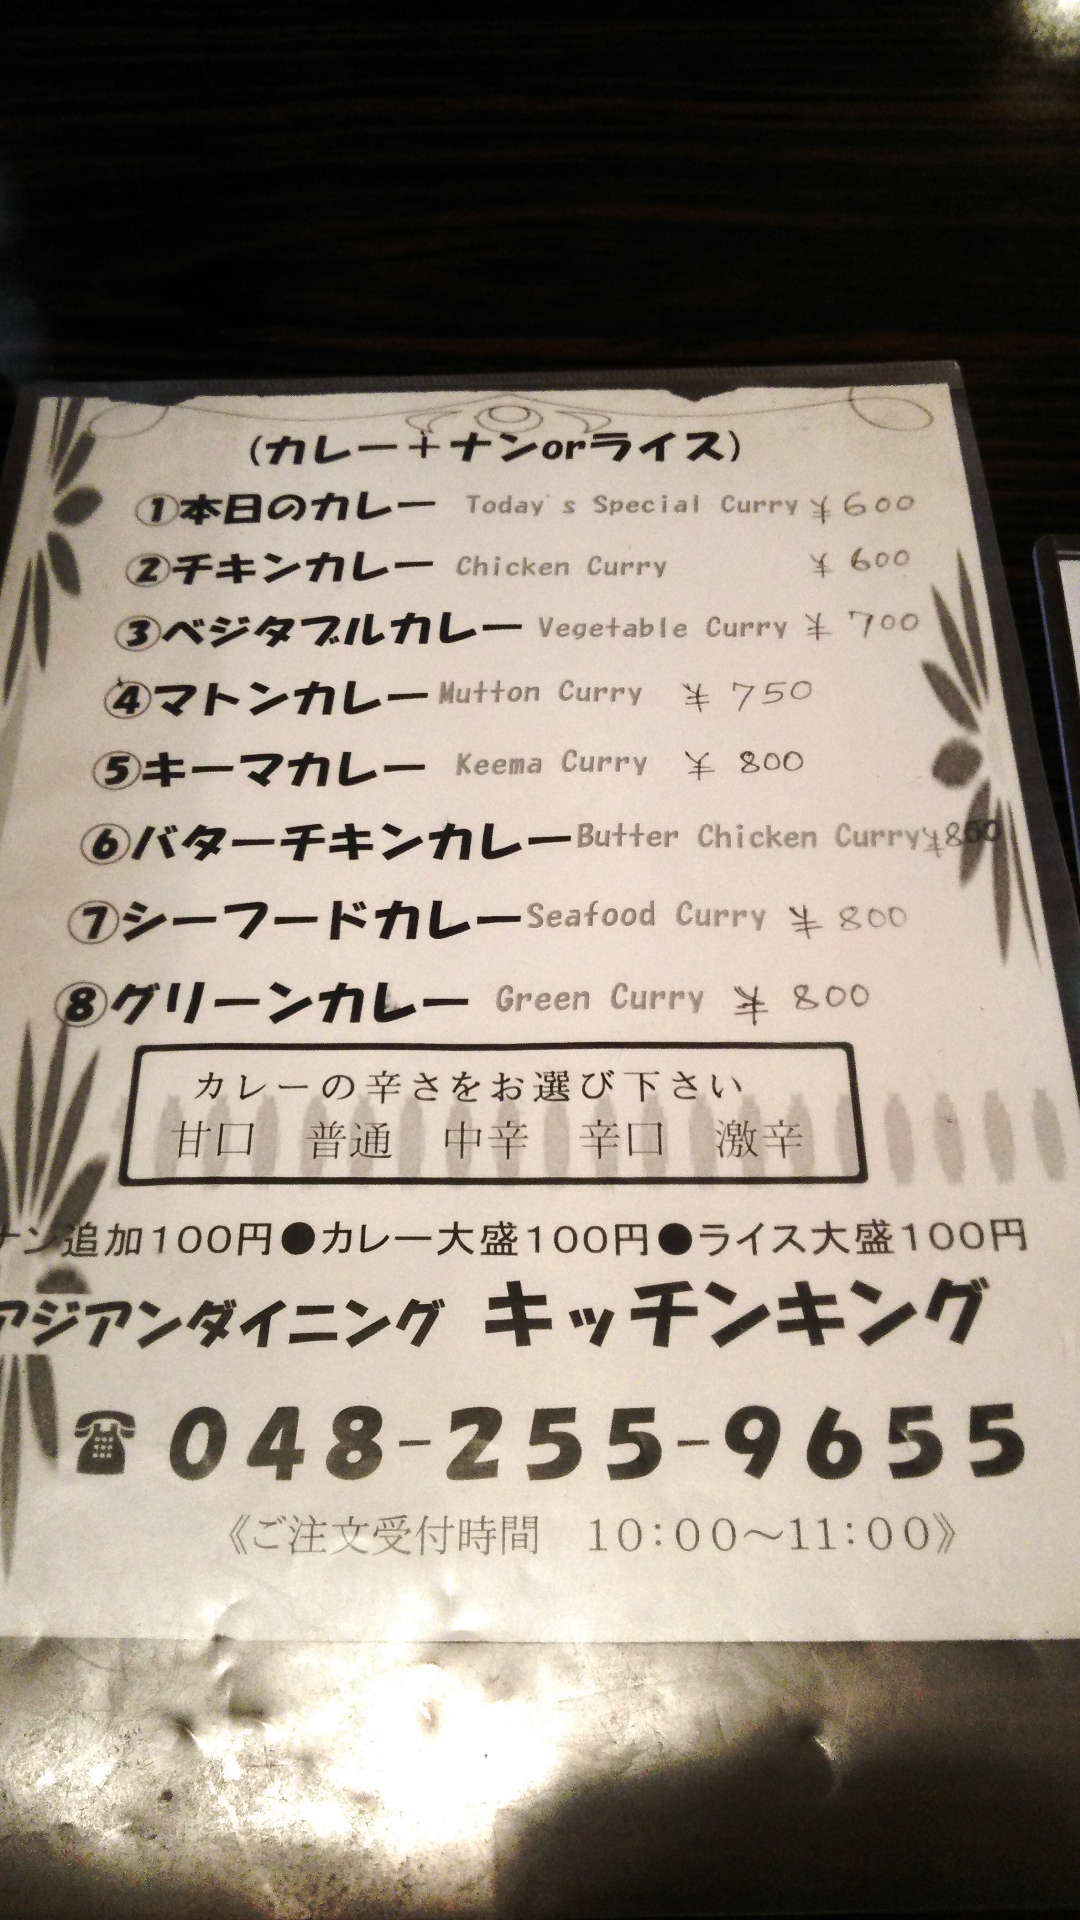 (カレー＋ナンorライス)
①本日のカレー Today's Special Curry ¥600
②チキンカレー Chicken Curry ¥600
③ベジタブルカレー Vegetable Curry ¥700
④マトンカレー Mutton Curry ¥750
⑤キーマカレー Keema Curry ¥800
⑥バターチキンカレー Butter Chicken Curry ¥800
⑦シーフードカレー Seafood Curry ¥800
⑧グリーンカレー Green Curry ¥800
カレーの辛さをお選び下さい
甘口 普通 中辛 辛口 激辛
ナン追加100円●カレー大盛100円●ライス大盛100円
アジアンダイニング キッチンキング
☎048-255-9655
《ご注文受付時間 10:00〜11:00》